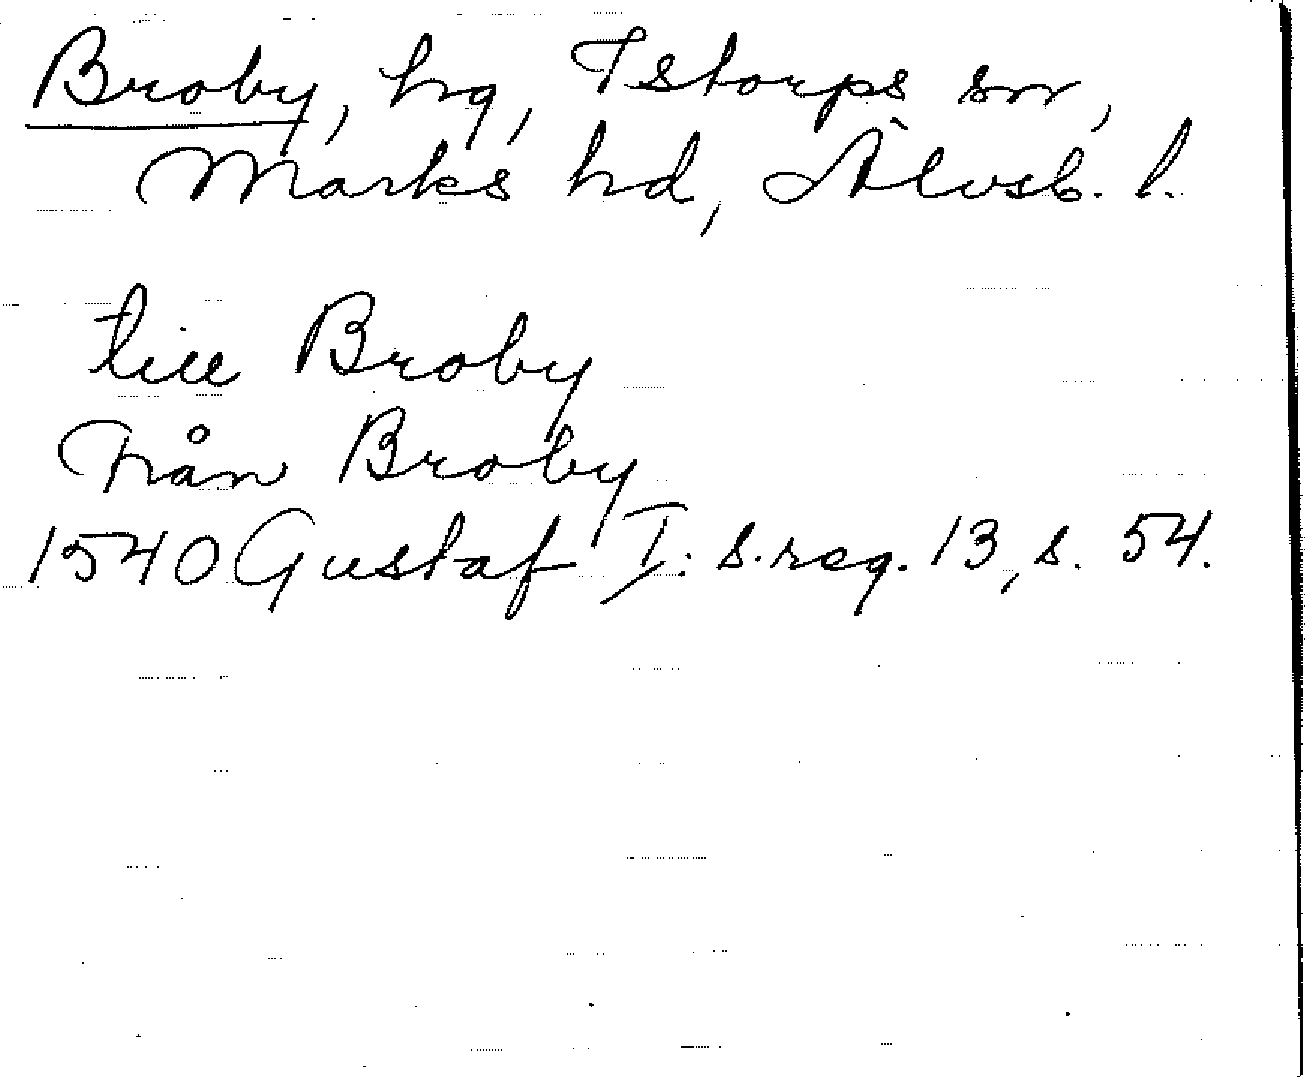 Broby, hg, Istorps sn,
Marks hd, Älvsb. l.
till Broby
Från Broby
1540 Gustaf I: s. reg. 13, s. 54.